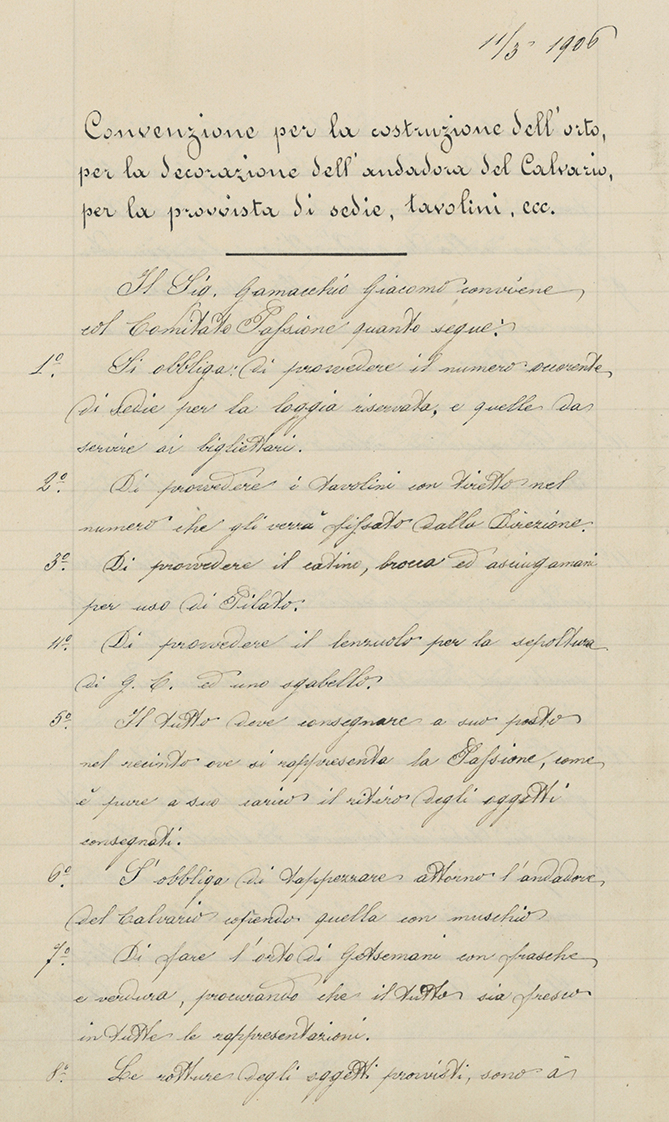 11/3 1906
Convenzione per la costruzione dell'orto,
per la decorazione dell'andadora del Calvario,
per la provvista di sedie, tavolini, ecc.
Il Sig. Gamacchio Giacomo conviene
col Comitato Passione quanto segue:
1º. Si obbliga: di provvedere il numero occorente
di sedie per la loggia riservata, e quelle da
servire ai bigliettari.
2º. Di provvedere i tavolini con tiretto nel
numero che gli verrà fissato dalla Direzione.
3º. Di provvedere il catino, brocca ed asciugamani
per uso di Pilato.
4º. Di provvedere il lenzuolo per la sepoltura
di G. C. ed uno sgabello.
5º. Il tutto deve consegnare a suo posto
nel recinto ove si rappresenta la Passione, come
è pure a suo carico il ritiro degli oggetti
consegnati.
6º. S'obbliga di tappezzare attorno l'andadora
del Calvario coprendo quella con muschio
7º. Di fare l'orto di Getsemani con frasche
e verdura, procurando che il tutto sia fresco
in tutte le rappresentazioni.
8º. Le rotture degli oggetti provvisti, sono a